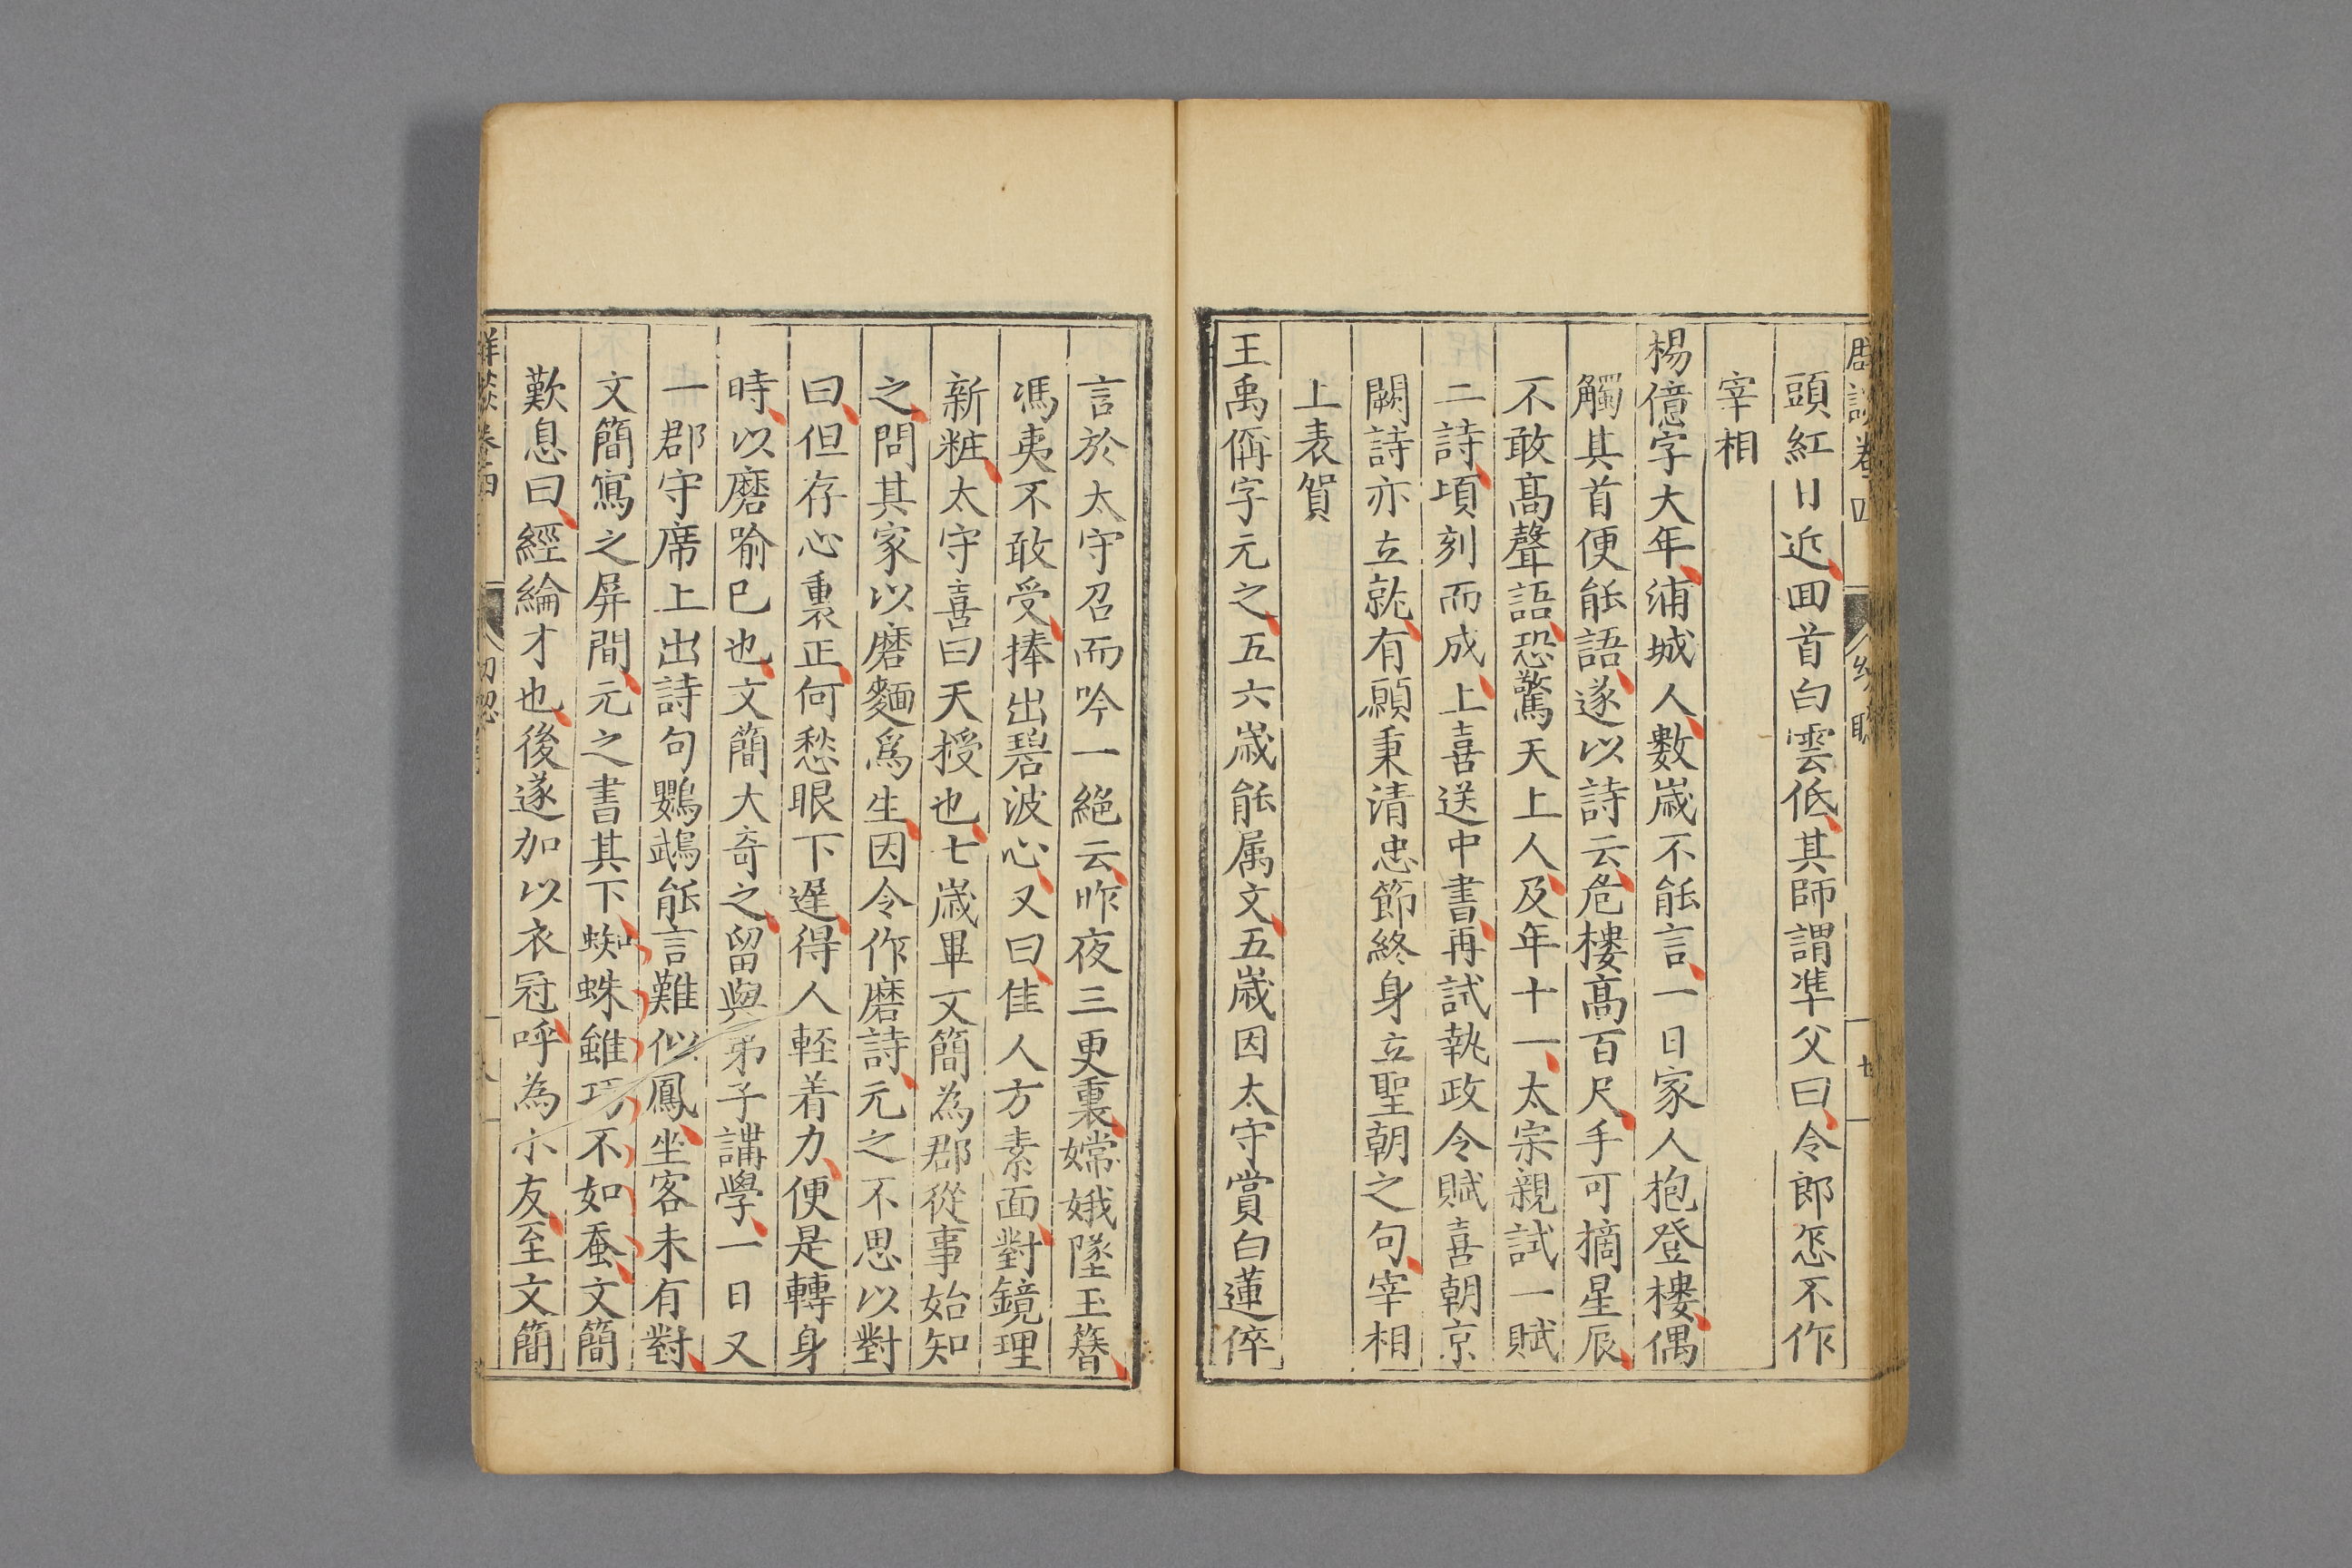 頭紅日近囬首白雲低其師謂凖父曰令郎怎不作
宰相
楊億字大年浦城人數歲不能言一日家人抱登樓偶
觸其首便能語遂以詩云危樓髙百尺手可摘星辰
不敢髙聲語恐驚天上人及年十一太宗親試一賦
二詩頃刻而成上喜送中書再試執政令賦喜朝京
闕詩亦立就有願秉清忠節終身立聖朝之句宰相
上表賀
王禹偁字元之五六歲能属文五歲因太守賞白蓮倅
言於太守召而吟一絕云昨夜三更裏嫦娥墜玉簪
馮夷不敢受捧出碧波心又曰佳人方素面對鏡理
新粧太守喜曰天授也七歲畢文簡為郡從事始知
之問其家以磨麵爲生因令作磨詩元之不思以對
曰但存心裏正何愁眼下遲得人輕着力便是轉身
時以磨喻已也文簡大奇之留與弟子講學一日又
一郡守席上出詩句鸚鵡能言難似鳳坐客未有對
文簡寫之屏間元之書其下蜘蛛雖巧不如蚕文簡
歎息曰經綸才也後遂加以衣冠呼為小友至文簡